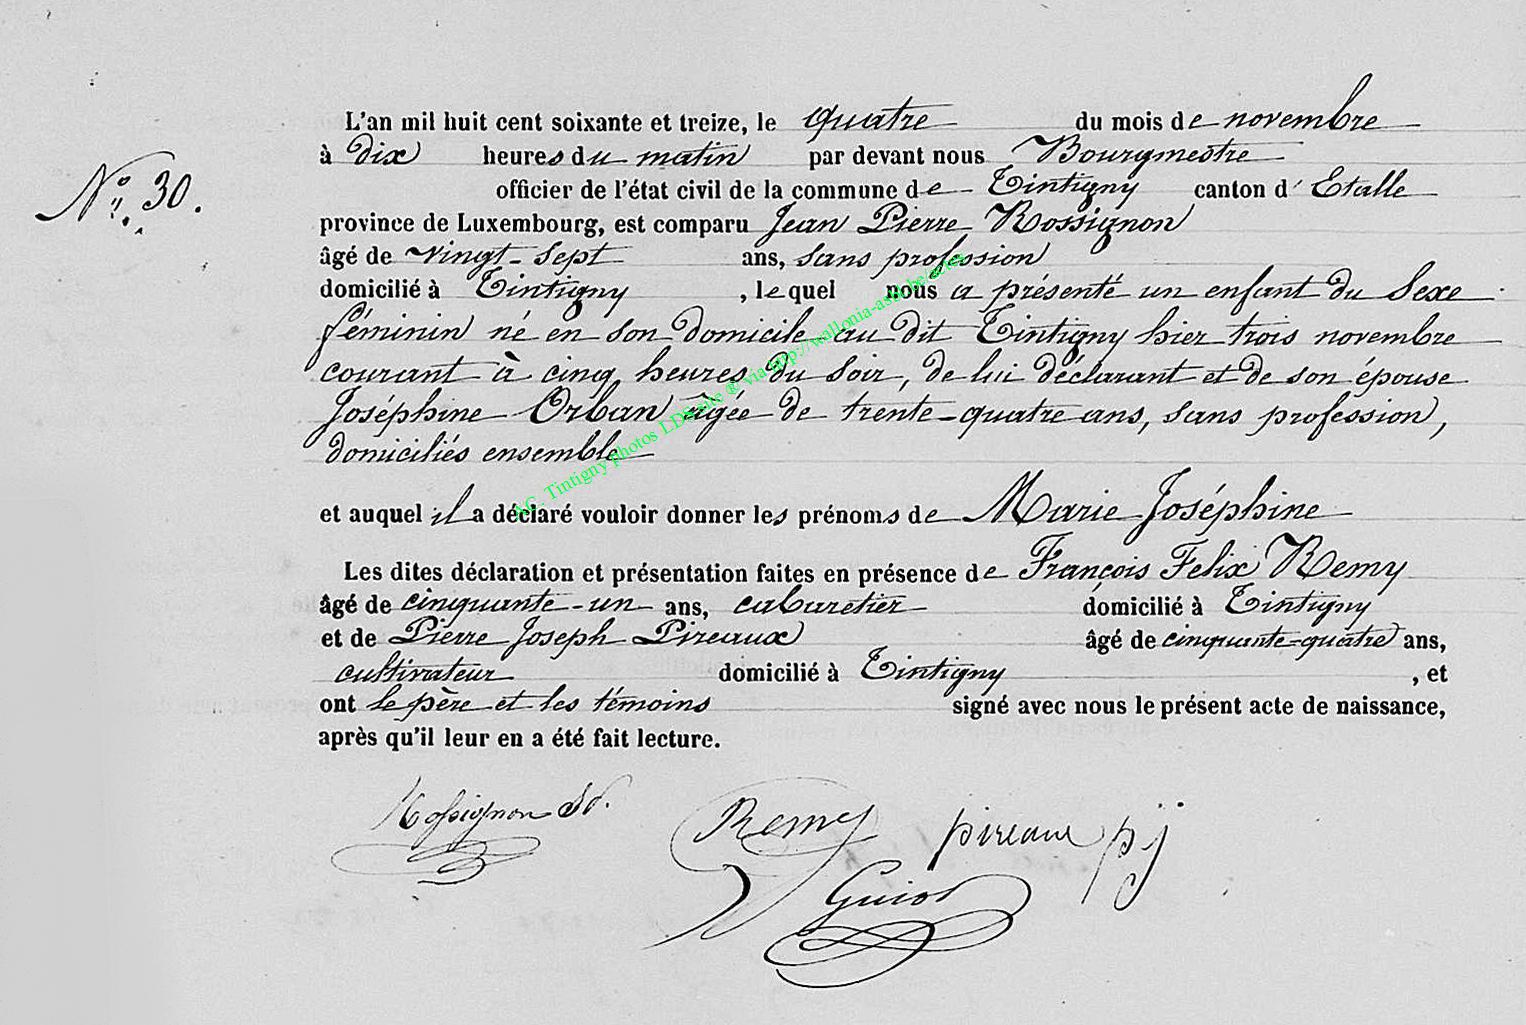 L'an mil huit cent soixante et treize, le quatre du mois de novembre
à dix heures du matin par devant nous Bourgmestre
N° 30.
officier de l'état civil de la commune de Tintigny canton d' Etalle
province de Luxembourg, est comparu Jean Pierre Rossignon
âgé de vingt-sept ans, sans profession
domicilié à Tintigny, lequel nous a présenté un enfant du sexe
féminin né en son domicile au dit Tintigny hier trois novembre
courant à cinq heures du soir, de lui déclarant et de son épouse
Joséphine Orban âgée de trente-quatre ans, sans profession,
domiciliés ensemble
AC. Tintigny photos LDS aile ® via http://wallonia-asbl.be/actes
et auquel il a déclaré vouloir donner les prénoms de Marie Joséphine
Les dites déclaration et présentation faites en présence de François Felix Remy
âgé de cinquante-un ans, cabaretier domicilié à Tintigny
et de Pierre Joseph Pireaux âgé de cinquante-quatre ans,
cultivateur domicilié à Tintigny, et
ont le père et les témoins signé avec nous le présent acte de naissance,
après qu'il leur en a été fait lecture.
Rossignon
Remy pireaux pj
Guiot